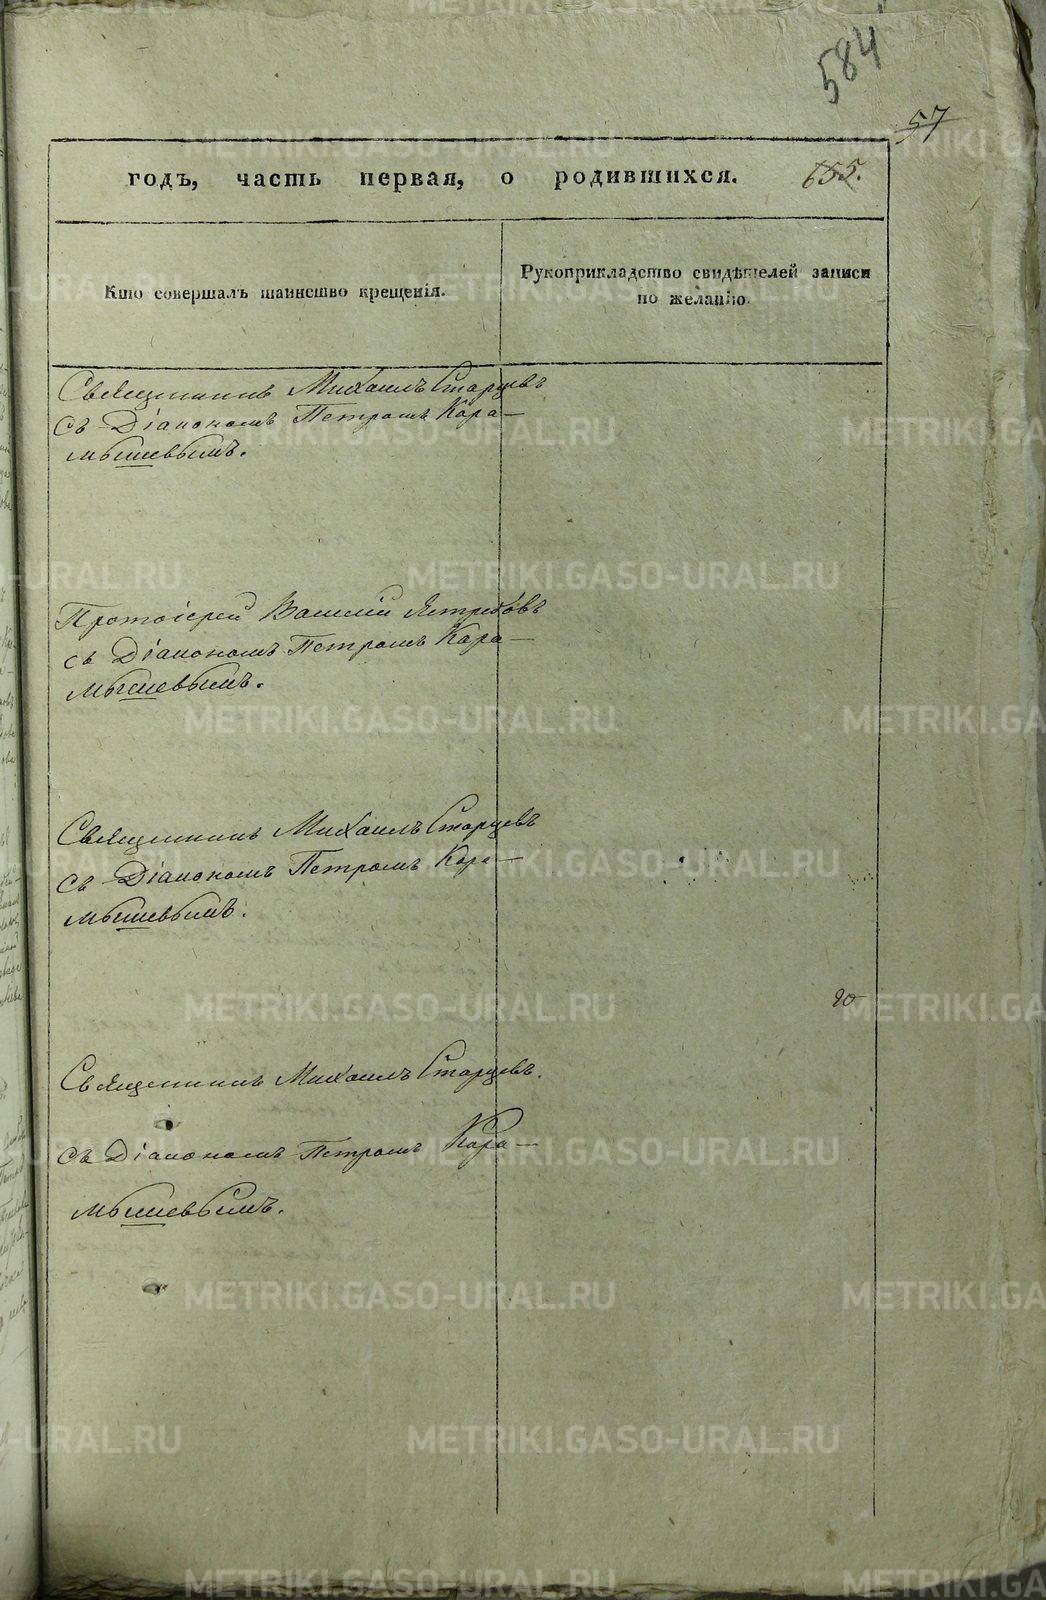 584
57
годъ, часть первая, о родившихся. 655.
Кто совершалъ таинство крещенія.
Рукоприкладство свидѣтелей записи
по желанію.
Священникъ Михаилъ Старцевъ
съ Діакономъ Петромъ Кара-
мышевымъ.
Протоіерей Василій Ястребовъ
съ Діакономъ Петромъ Кара-
мышевымъ.
Священникъ Михаилъ Старцевъ
съ Діакономъ Петромъ Кара-
мышевымъ.
20
Священникъ Михаилъ Старцевъ.
съ Діакономъ Петромъ Кара-
мышевымъ.
METRIKI.GASO-URAL.RU